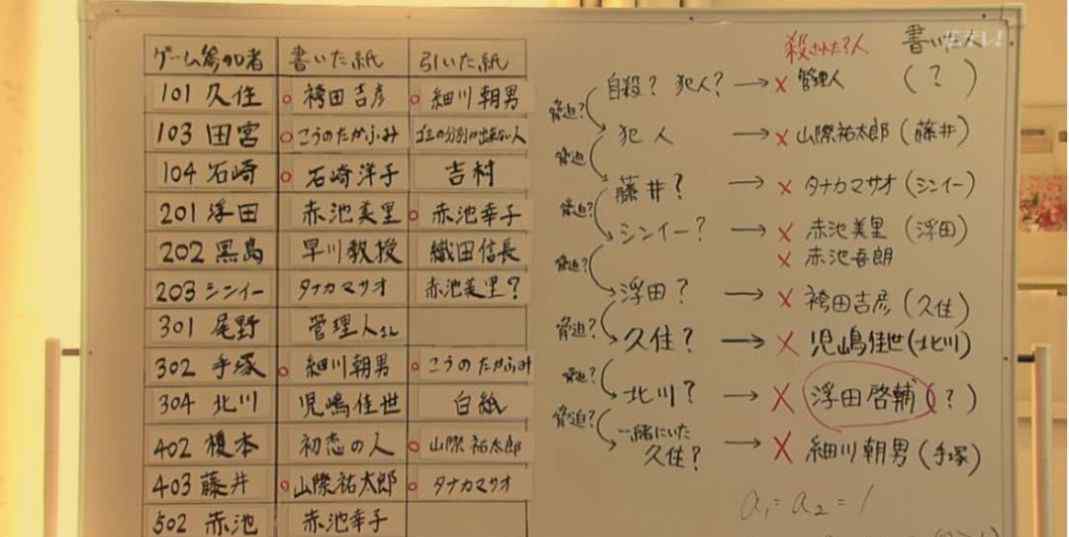 ゲーム参加者 書いた紙 引いた紙
101 久住 ○ 袴田吉彦 ○ 細川朝男
103 田宮 ○ こうのたかふみ ゴミの分別が出来ない人
104 石崎 ○ 石崎洋子 吉村
201 浮田 赤池美里 ○ 赤池幸子
202 黒島 早川教授 織田信長
203 シンイー タナカマサオ 赤池美里?
301 尾野 管理人さん
302 手塚 ○ 細川朝男 ○ こうのたかふみ
304 北川 児嶋佳世 白紙
402 榎本 初恋の人 ○ 山際祐太郎
403 藤井 ○ 山際祐太郎 ○ タナカマサオ
502 赤池 赤池幸子
殺された人 書いた人
自殺? 犯人? → × 管理人 (?)
脅迫?
犯人 → × 山際祐太郎 (藤井)
脅迫?
藤井? → × タナカマサオ (シンイー)
脅迫?
シンイー? → × 赤池美里 (浮田)
× 赤池吾朗
脅迫?
浮田? → × 袴田吉彦 (久住)
脅迫?
久住? → × 児嶋佳世 (北川)
脅迫?
北川? → × 浮田啓輔 (?)
脅迫?
一緒にいた
久住? → × 細川朝男 (手塚)
a₁ = a₂ = 1